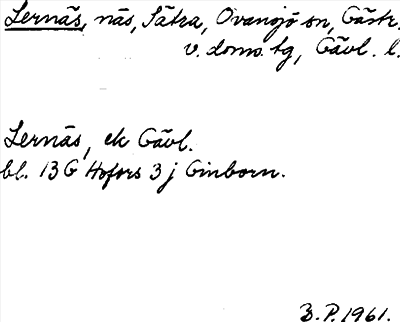 Lernäs, näs, Sätra, Ovansjö sn, Gästr.
v. doms. tg, Gävl. l.
Lernäs, ek Gävl.
bl. 13 G Hofors 3 j Ginborn.
B. P. 1961.